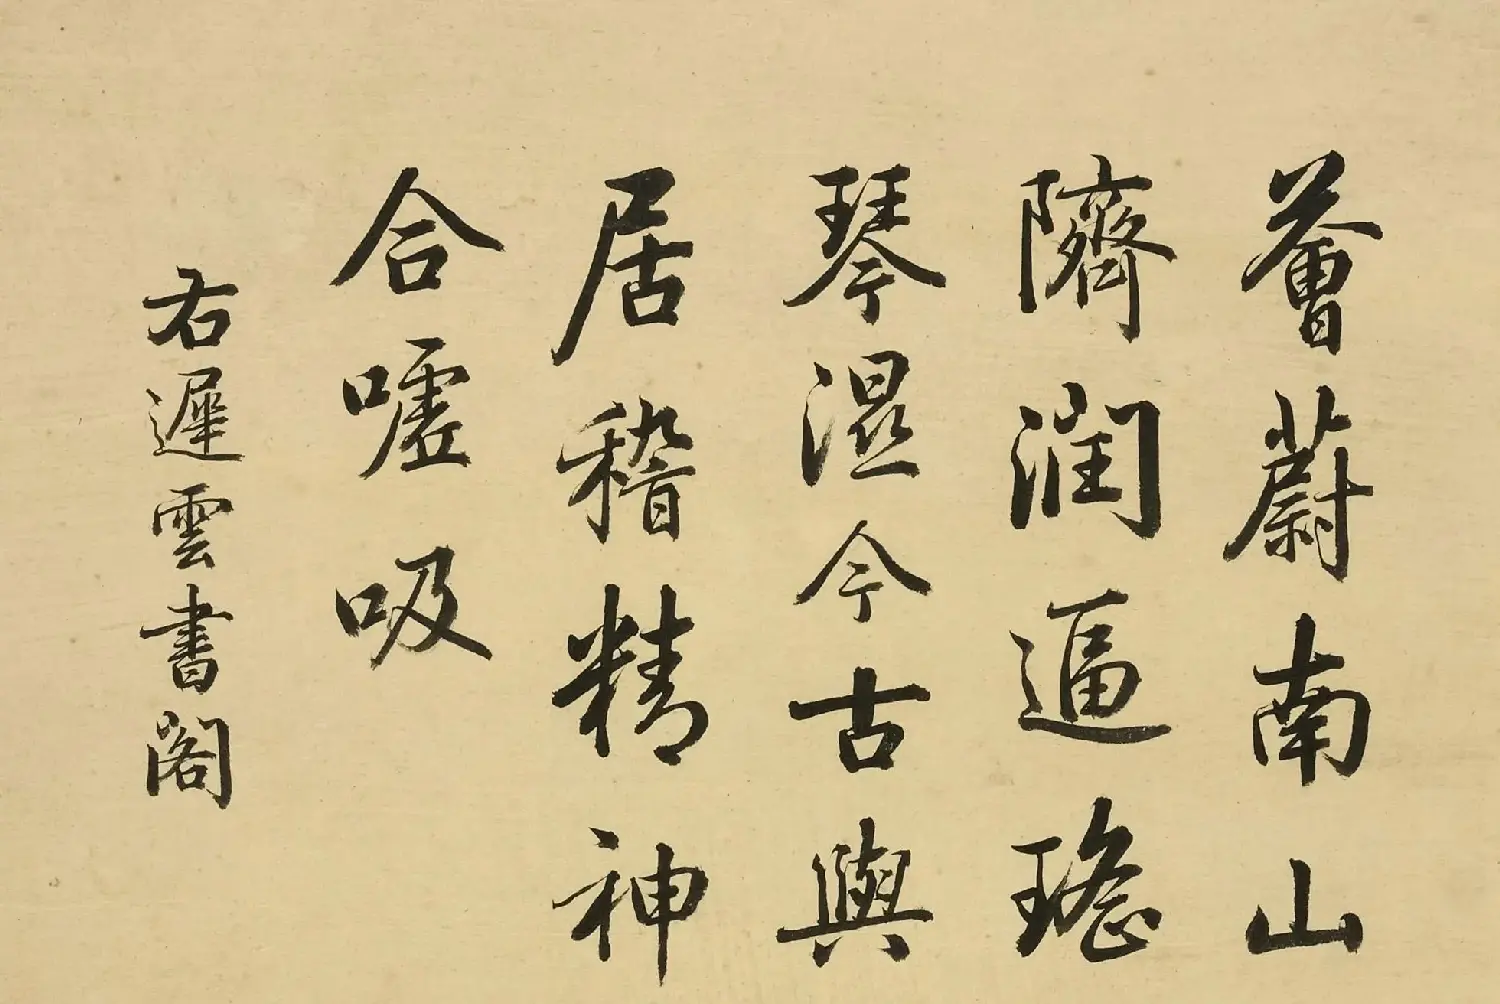 薈蔚南山
隮潤逼瑤
琴濕今古與
居稽精神
合嘘吸
右遲雲書閣